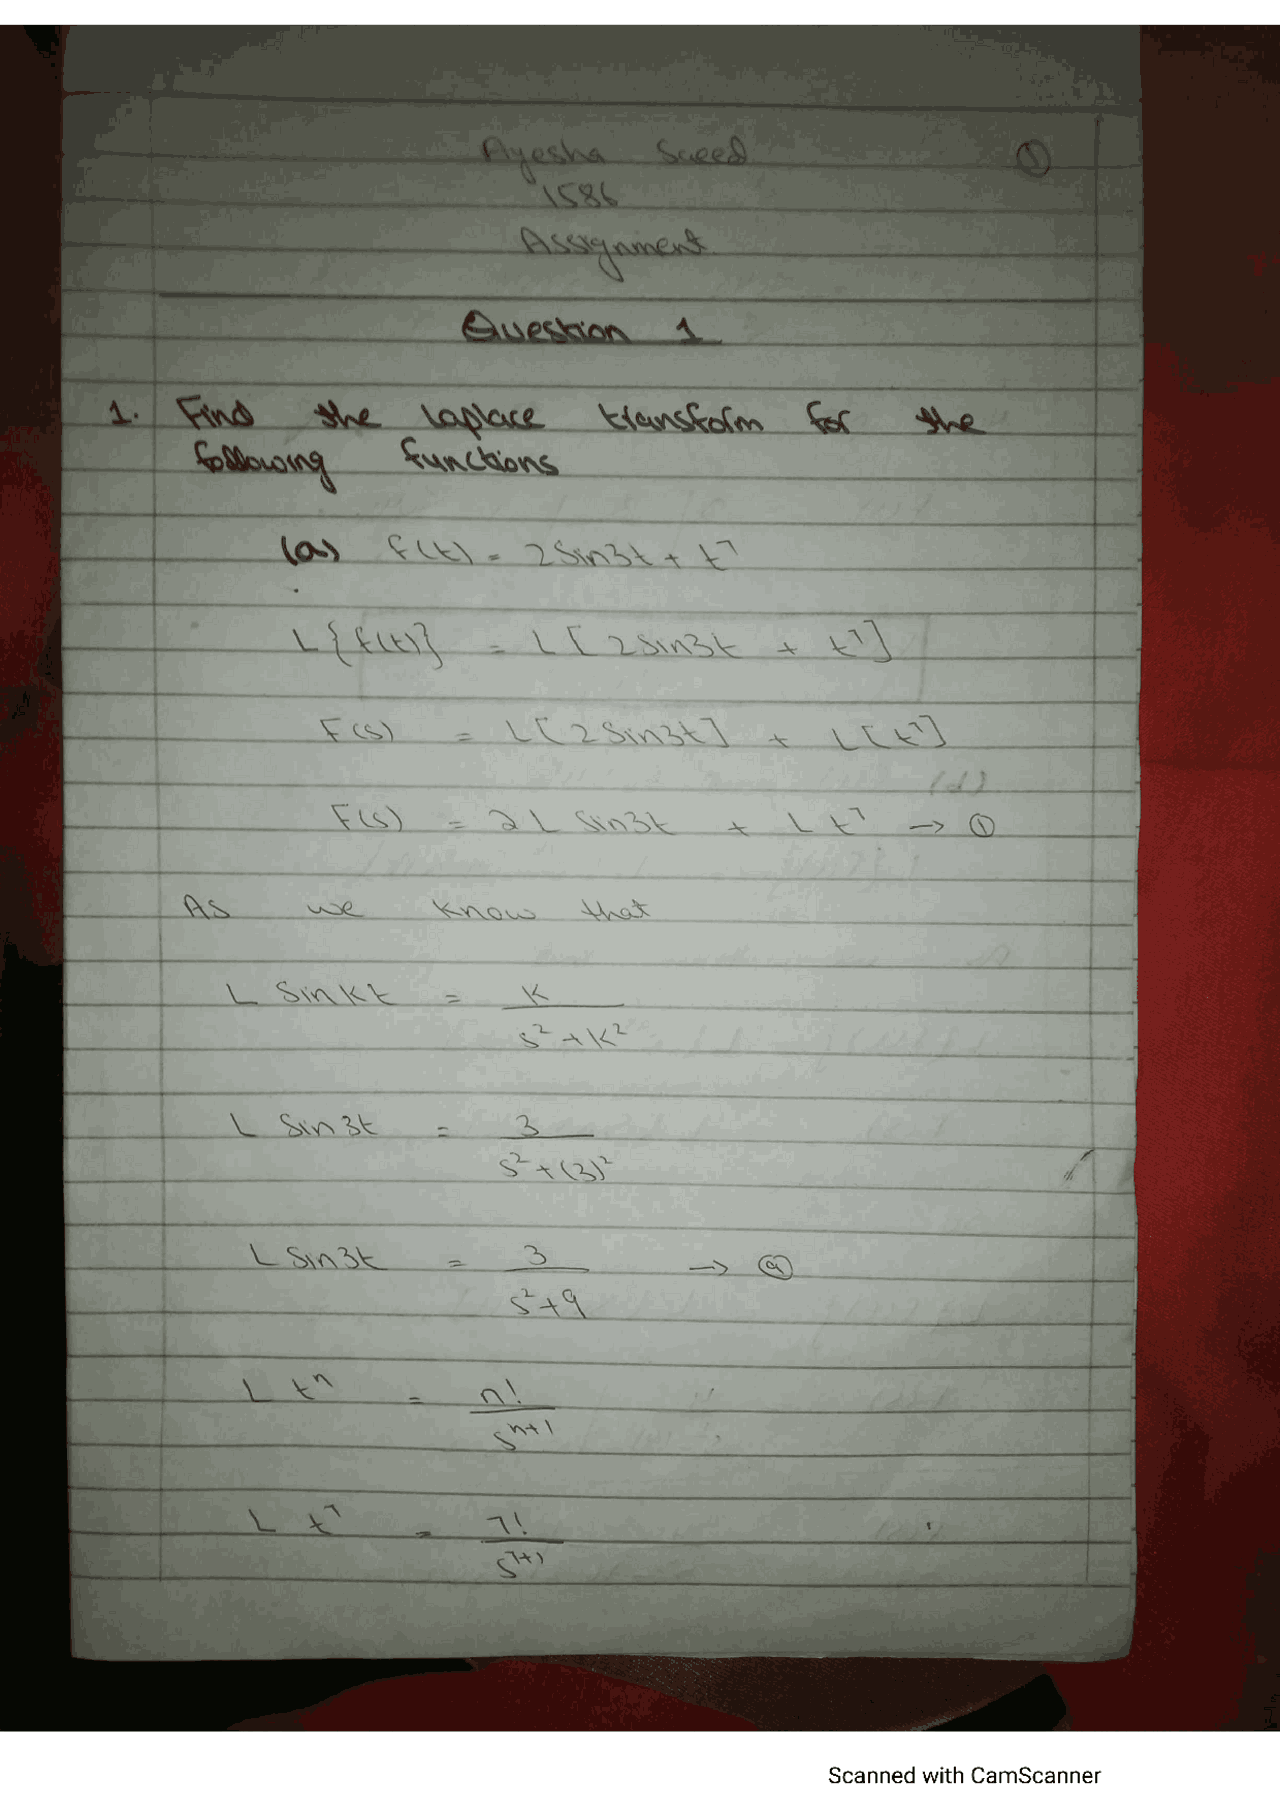 Ayesha Saeed ①
1586
Assignment
Question 1
1. Find the laplace transform for the
following functions
(a) f(t) = 2Sin3t + t⁷
L{f(t)} = L[2Sin3t + t⁷]
F(s) = L[2Sin3t] + L[t⁷]
F(s) = 2L Sin3t + L t⁷ → ①
As we know that
L Sinkt = k
s² + k²
L Sin3t = 3
s² + (3)²
L Sin3t = 3 → ⓐ
s² + 9
L tⁿ = n!
sⁿ⁺¹
L t⁷ = 7!
s⁷⁺¹
Scanned with CamScanner